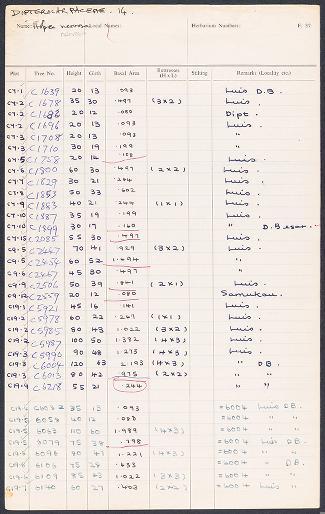 DIPTEROCARPACEAE. 14.
Name: Hopea nervosa Local Names: Herbarium Numbers: F. 37
Plot Tree No. Height Girth Basal Area Buttresses (H x L) Stilting Remarks (Locality etc.)
C4.1 C1639 20 13 .093 Luis D.B.
C4.2 C1678 35 30 .497 (3x2) Luis.
C4.2 C1686 20 12 .080 Dipt.
C4.2 C1696 20 13 .093 Luis.
C4.3 C1708 20 13 .093 "
C4.3 C1710 30 19 .199 "
C4.5 C1758 20 14 .108 Luis.
C4.6 C1800 60 30 .497 (2x2) Luis.
C4.7 C1829 30 21 .244 Luis.
C4.8 C1853 50 33 .602 Luis.
C4.9 C1883 40 21 .244 (1x1) Luis.
C4.10 C1887 35 19 .199 Luis.
C4.10 C1899 30 17 .160 "
C4.15 C2085 55 30 .497 Luis.
C9.5 C2447 70 41 .929 (3x2) Luis.
C9.5 C2454 60 52 1.494 "
C9.6 C2467 45 30 .497 "
C9.9 C2506 50 39 .841 (2x1) Luis.
C9.12 C2559 20 12 .080 Samukau.
C19.1 C5921 45 16 .141 Luis.
C19.2 C5978 60 22 .267 (1x1) Luis.
C19.2 C5985 80 43 1.022 (3x2) Luis.
C19.2 C5987 100 50 1.382 (4x3) Luis.
C19.3 C5990 90 48 1.273 (4x3) Luis.
C19.3 C6004 120 63 2.193 (4x3) " DB
C19.3 C6013 80 42 .975 (2x2) " "
C19.9 C6218 55 21 .244 " "
35 13 .093 =6004 Luis DB.
C19.5 6058 40 12 .080 =6004 " "
C19.5 6062 110 60 1.989 (4x3) =6004 " "
C19.5 6079 75 38 .798 =6004 Luis DB.
C19.6 6096 80 47 1.221 (4x3) =6004 " "
C19.6 6106 75 28 .433 =6004 " DB
C19.6 6109 85 43 1.022 (3x3) =6004 " "
C19.7 6140 60 27 .403 (2x2) =6004 Luis "